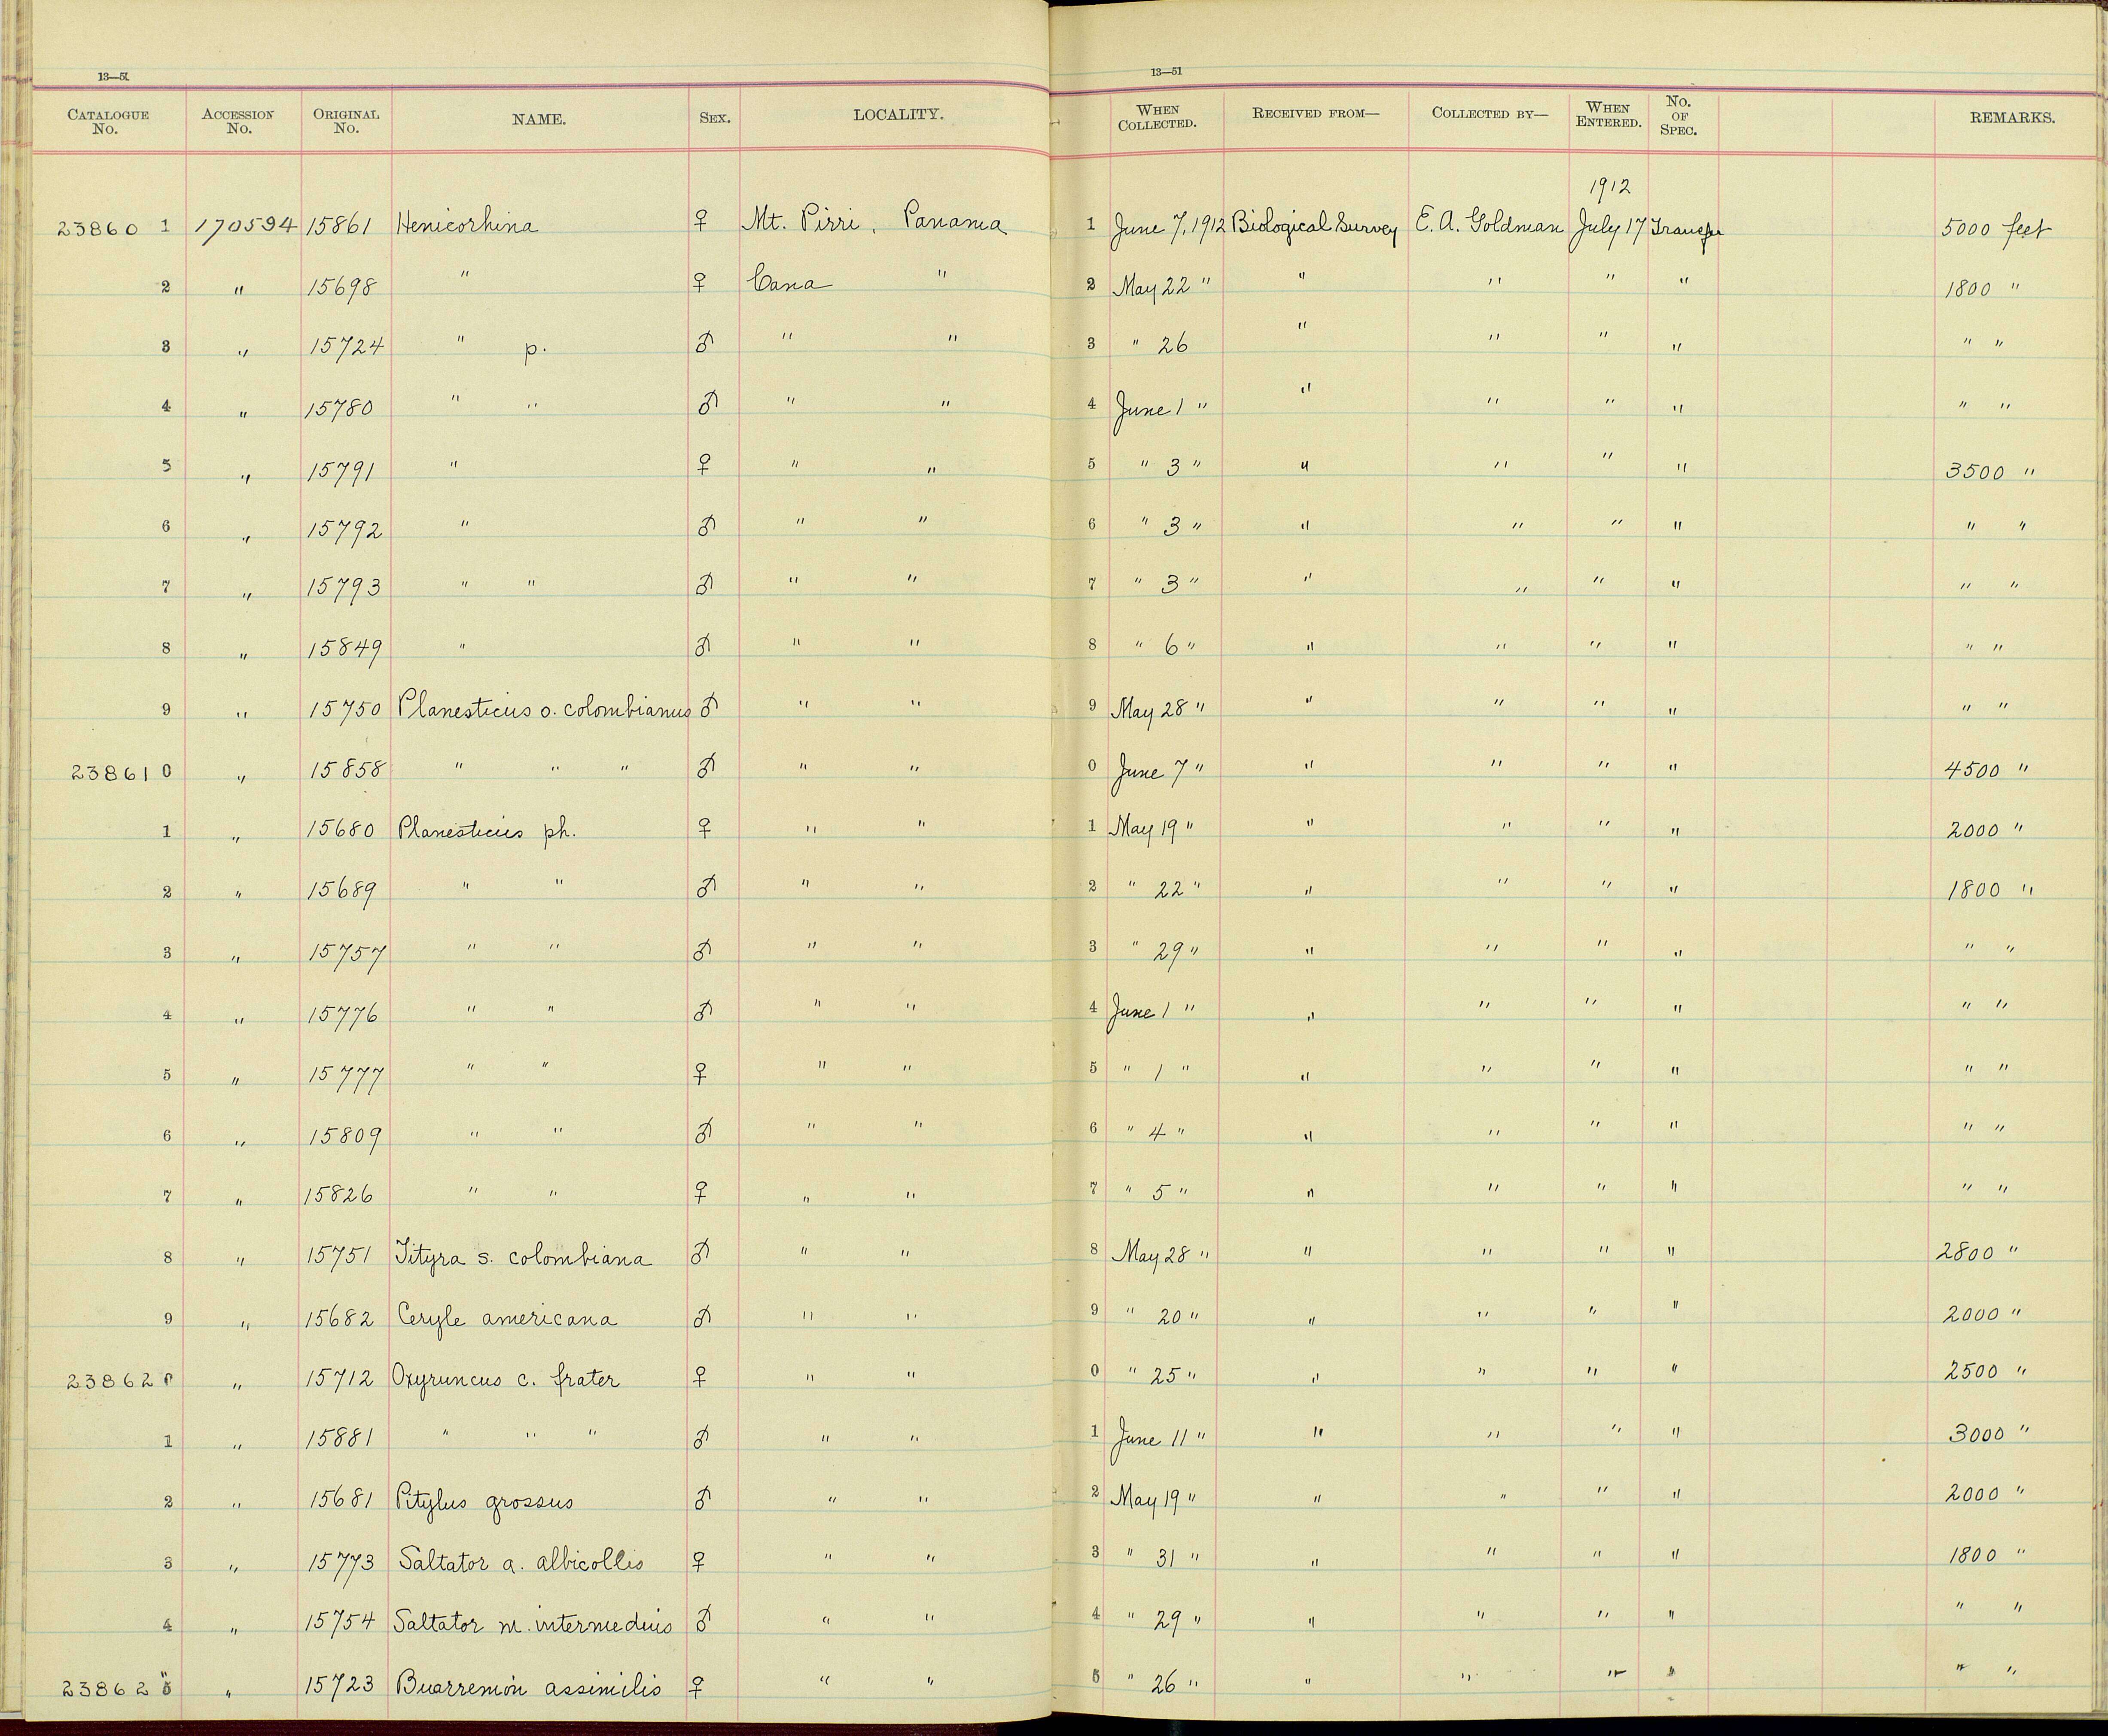 13—51 13—51
CATALOGUE No. ACCESSION No. ORIGINAL No. NAME. SEX. LOCALITY. WHEN COLLECTED. RECEIVED FROM— COLLECTED BY— WHEN ENTERED. No. OF SPEC. REMARKS.
1912
23860 1 170594 15861 Henicorhina ♀ Mt. Pirri, Panama 1 June 7, 1912 Biological Survey E. A. Goldman July 17 Transfer 5000 feet
2 " 15698 " ♀ Cana " 2 May 22 " " " " " 1800 "
3 " 15724 " p. ♂ " " 3 " 26 " " " " " "
4 " 15780 " " ♂ " " 4 June 1 " " " " " " "
5 " 15791 " ♀ " " 5 " 3 " " " " " 3500 "
6 " 15792 " ♂ " " 6 " 3 " " " " " " "
7 " 15793 " " ♂ " " 7 " 3 " " " " " " "
8 " 15849 " ♂ " " 8 " 6 " " " " " " "
9 " 15750 Planesticus o. colombianus ♂ " " 9 May 28 " " " " " " "
23861 0 " 15858 " " " ♂ " " 0 June 7 " " " " " 4500 "
1 " 15680 Planesticus ph. ♀ " " 1 May 19 " " " " " 2000 "
2 " 15689 " " ♂ " " 2 " 22 " " " " " 1800 "
3 " 15757 " " ♂ " " 3 " 29 " " " " " " "
4 " 15776 " " ♂ " " 4 June 1 " " " " " " "
5 " 15777 " " ♀ " " 5 " 1 " " " " " " "
6 " 15809 " " ♂ " " 6 " 4 " " " " " " "
7 " 15826 " " ♀ " " 7 " 5 " " " " " " "
8 " 15751 Tityra s. colombiana ♂ " " 8 May 28 " " " " " 2800 "
9 " 15682 Ceryle americana ♂ " " 9 " 20 " " " " " 2000 "
23862 0 " 15712 Oxyruncus c. frater ♀ " " 0 " 25 " " " " " 2500 "
1 " 15881 " " " ♂ " " 1 June 11 " " " " " 3000 "
2 " 15681 Pitylus grossus ♂ " " 2 May 19 " " " " " 2000 "
3 " 15773 Saltator a. albicollis ♀ " " 3 " 31 " " " " " 1800 "
4 " 15754 Saltator m. intermedius ♂ " " 4 " 29 " " " " " " "
23862 5 " 15723 Buarremon assimilis ♀ " " 5 " 26 " " " " " " "